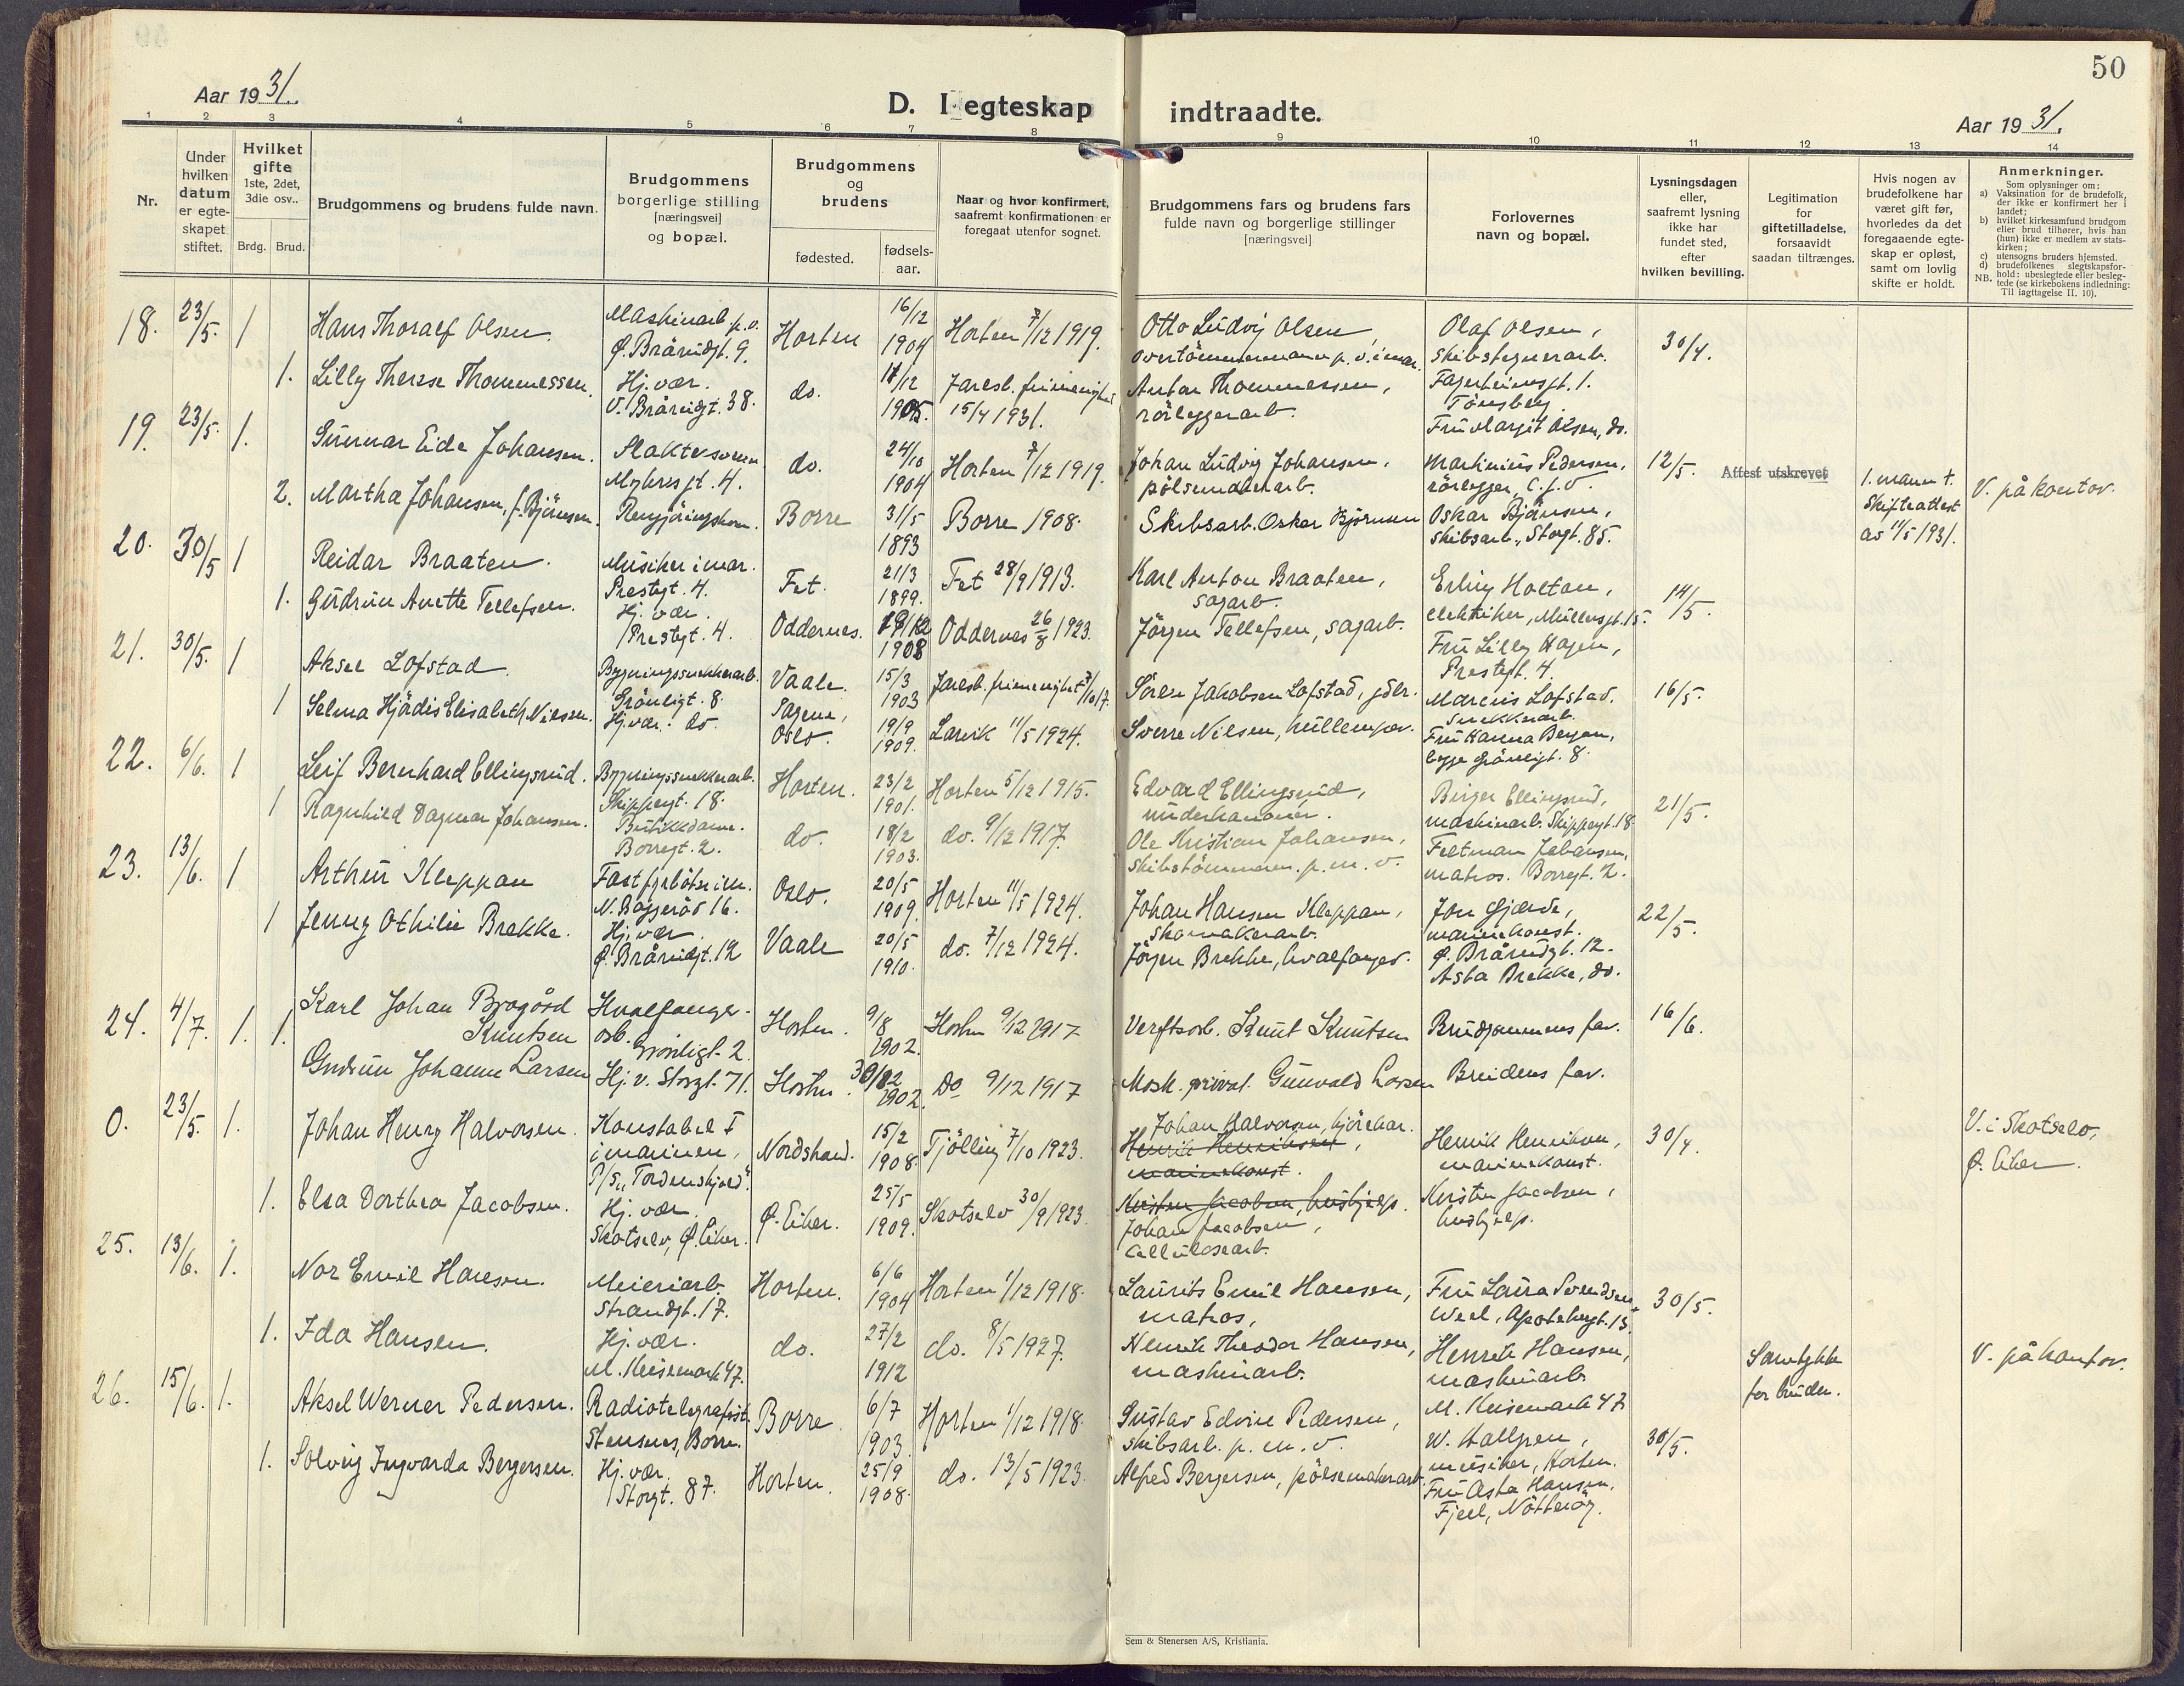 50
Aar 1931.
D. I egteskap indtraadte.
Aar 1931.
1 2 3 4 5 6 7 8 9 10 11 12 13 14
Nr.
Under hvilken datum er egteskapet stiftet.
Hvilket gifte 1ste, 2det, 3die osv..
Brdg. Brud.
Brudgommens og brudens fulde navn.
Brudgommens borgerlige stilling [næringsvei] og bopæl.
Brudgommens og brudens
fødested.
fødsels-aar.
Naar og hvor konfirmert, saafremt konfirmationen er foregaat utenfor sognet.
Brudgommens fars og brudens fars fulde navn og borgerlige stillinger [næringsvei]
Forlovernes navn og bopæl.
Lysningsdagen eller, saafremt lysning ikke har fundet sted, efter hvilken bevilling.
Legitimation for giftetilladelse, forsaavidt saadan tiltrænges.
Hvis nogen av brudefolkene har været gift før, hvorledes da det foregaaende egteskap er opløst, samt om lovlig skifte er holdt.
Anmerkninger.
Som oplysninger om:
a) Vaksination for de brudefolk, der ikke er konfirmert her i landet;
b) hvilket kirkesamfund brudgom eller brud tilhører, hvis han (hun) ikke er medlem av statskirken;
c) utensogns bruders hjemsted.
d) brudefolkenes slegtskapsforhold: ubeslegtede eller beslegtede (se kirkebokens indledning: NB. Til iagttagelse II. 10).
18. 23/5. 1 Hans Thoralf Olsen. Maskinarb. p.v. Ø. Brårödgt. 9. Horten 16/12 1904 Horten 7/12 1919. Otto Ludvig Olsen, overtömmermann p.v. i mar. Olaf Olsen, skibstegnerarb. Fagerheimsgt. 1. Tönsberg. 30/4.
1. Lilly Therese Thommessen. Hj. vær. V. Brårödgt. 38. do. 11/12 1905. Jarlsb. frimenighet 15/4 1931. Anton Thommessen, rörleggerarb. Fru Margit Olsen, do.
19. 23/5. 1. Gunnar Eide Johansen. Slaktersvenn Myhresgt. 4. do. 24/10 1904 Horten 7/12 1919. Johan Ludvig Johansen, pölsemakerarb. Martinius Pedersen, rörlegger, C.J.V. 12/5. Attest utskrevet 1. mann †. Skifteattest as 11/5 1931. V. på kontor.
2. Martha Johansen, f. Björnsen. Rengjöringskone. Borre 31/5 1893 Borre 1908. Skibsarb. Oskar Björnsen Oskar Björnsen, skibsarb., Storgt. 85.
20. 30/5 1 Reidar Braaten. Musiker i mar. Prestegt. 4. Fet. 21/3 1899. Fet 28/9 1913. Karl Anton Braaten, sagarb. Erling Holtan, elektriker, Müllersgt. 15. 14/5.
1. Gudrun Anette Tellefsen. Hj. vær. Prestegt. 4. Oddernes. 19/12 1908 Oddernes 26/8 1923. Jörgen Tellefsen, sagarb. Fru Lilly Hagen, Prestegt. 4.
21. 30/5. 1 Aksel Lofstad. Bygningssnekkerarb. Grönligt. 8. Vaale. 15/3 1903 Jarlsb. frimenighet 7/10 17. Sören Jakobsen Lofstad, gdbr. Marcus Lofstad. Snekkerarb. 16/5.
1 Selma Hjördis Elisabeth Nilsen. Hj. vær. do. Sagene, Oslo. 19/9 1909. Larvik 11/5 1924. Sverre Nilsen, Fru Hanna Bergan, begge Grönligt. 8.
22. 6/6. 1 Leif Bernhard Ellingsrud. Bygningssnekkerarb. Skippergt. 18. Horten. 23/2 1901. Horten 5/12 1915. Edvard Ellingsrud, underkanoner. Birger Ellingsrud, maskinarb. Skippergt. 18 21/5.
1 Ragnhild Dagmar Johansen. Butikkdame. Borregt. 2. do. 18/2 1903. do. 9/12 1917. Ole Kristian Johansen, skibstömmerm. p.m.v. Feltman Johansen, matros. Borregt. 2.
23. 13/6. 1 Arthur Kleppan Fast fyrböter i m. N. Baggeröd 16. Oslo. 20/5 1909. Horten 11/5 1924. Johan Hansen Kleppan, skomakerarb. Jon Gjærde, marinekonst. Ø. Bråröd gt. 12. 22/5.
1 Jenny Othilie Brekke. Hj. vær. Ø. Bråröd gt. 12 Vaale 20/5 1910. do. 7/12 1924. Jörgen Brekke, hvalfanger. Asta Brekke, do.
24. 4/7. 1. 1. Karl Johan Brogård Knutsen Hvalfangerarb. Grönligt. 2. Horten. 9/8 1902. Horten 9/12 1917 Verftsarb. Knut Knutsen Brudgommens far. 16/6.
Gudrun Johanne Larsen Hj. v. Storgt. 71. Horten. 30/12 1902. Do 9/12 1917 Mask. privat. Gunvald Larsen Brudens far.
0. 23/5. 1. Johan Henry Halvorsen. Konstabel I i marinen, P/S "Tordenskjold". Nordstrand. 15/2 1908. Tjölling 7/10 1923. Johan Halvorsen, kjörekar. Henrik Henriksen, marinekonst. Henrik Henriksen, marinekonst. 30/4. V. i Skotselv, Ø. Eiker.
1. Elsa Dorthea Jacobsen. Hj. vær. Skotselv, Ø. Eiker. Ø. Eiker. 25/5 1909. Skotselv 30/9 1923. Kirsten Jacobsen, husbjelp. Johan Jacobsen, cellulosearb. Kirsten Jacobsen, husbjelp.
25. 13/6. 1. Nor Emil Hansen. Meieriarb. Strandgt. 17. Horten. 6/6 1904 Horten 1/12 1918. Laurits Emil Hansen, matros, Fru Laura Svendsen Weel, Apotekergt. 13. 30/5.
1. Ida Hansen. Hj. vær. M. Keisemark 47. do. 27/2 1912 do. 8/5 1927. Henrik Theodor Hansen, maskinarb. Henrik Hansen, maskinarb. M. Keisemark 47 Samtykke for bruden. V. på kontor.
26. 15/6. 1. Aksel Werner Pedersen. Radiotelegrafist. Stensnes, Borre. Borre 6/7 1903. Horten 1/12 1918. Gustav Edvin Pedersen, skibsarb. p.m.v. W. Hallgren, musiker, Horten. 30/5.
1. Solveig Ingvarda Bergersen. Hj. vær. Storgt. 87. Horten. 25/9 1908. do. 13/5 1923. Alfred Bergersen, pölsemakerarb. Fru Asta Hansen, Fjeel, Nötteröy.
Sem & Stenersen A/S, Kristiania.